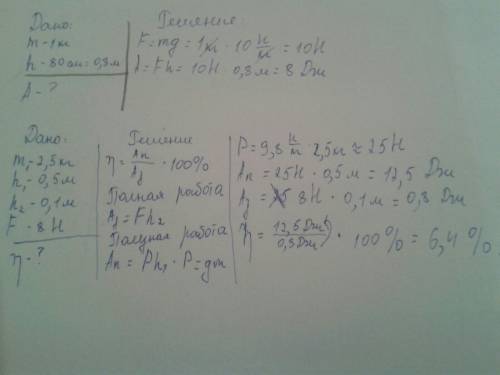 Дано:
m-1кг
h-80см=0,8м
A-?
Решение:
F=mg=1кг·10 Н/кг=10Н
A=Fh=10Н·0,8м=8 Дж
Дано:
m-2,5кг
h₁-0,5м
h₂-0,1м
F-8Н
η-?
Решение
η=Aп/Aз·100%
Полная работа
Aз=Fh₂
Полезная работа
Aп=Ph₁·P=gm
P=9,8 Н/кг·2,5кг≈25Н
Aп=25Н·0,5м=12,5 Дж
Aз=8Н·0,1м=0,8 Дж
η=12,5Дж/0,8Дж·100%=6,4%